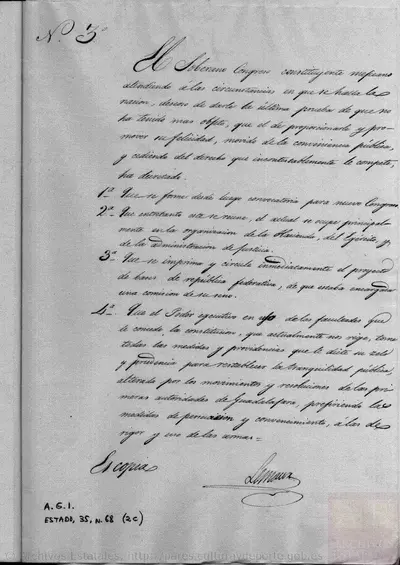 N.º 3º
El Soberano Congreso constituyente mejicano
atendiendo a las circunstancias en que se halla la
nacion, deseoso de darle la última prueba de que no
ha tenido mas objeto, que el de proporcionarle y pro-
mover su felicidad, movido de la conveniencia publica,
y cediendo del derecho que incontestablemente le compete,
ha decretado:
1º Que se forme desde luego convocatoria para nuevo Congreso
2º Que entretanto este se reune, el actual se ocupe principal-
mente en la organizacion de la Hacienda, del Egército, y
de la administracion de Justicia.
3º Que se imprima y circule inmediatamente el proyecto
de bases de república federativa, de que estaba encargada
una comision de su seno.
4º Que el Poder egecutivo en uso de las facultades que
le concede la constitucion, que actualmente rige, tome
todas las medidas y providencias que le dicte su zelo
y prudencia para restablecer la tranquilidad pública,
alterada por los movimientos y resoluciones de las pri-
meras autoridades de Guadalajara, prefiriendo las
medidas de persuasion y convencimiento, á las de
rigor y uso de las armas=
Es copia
Lemaur
A.G.I.
ESTADO, 35, N. 68 (2c)